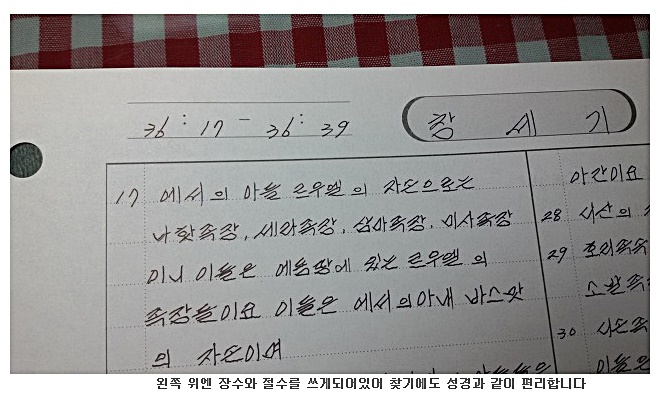 36:17 - 36:39
창 세 기
17 에서의 아들 르우엘의 자손으로는
나핫족장, 세라족장, 삼마족장, 미사족장
이니 이들은 에돔땅에 있는 르우엘의
족장들이요 이들은 에서의아내 바스맛
의 자손이며
야간이요
28 디산의
29 호리족속
소발족
30 디손족
이들은
왼쪽 위엔 장수와 절수를 쓰게되어있어 찾기에도 성경과 같이 편리합니다